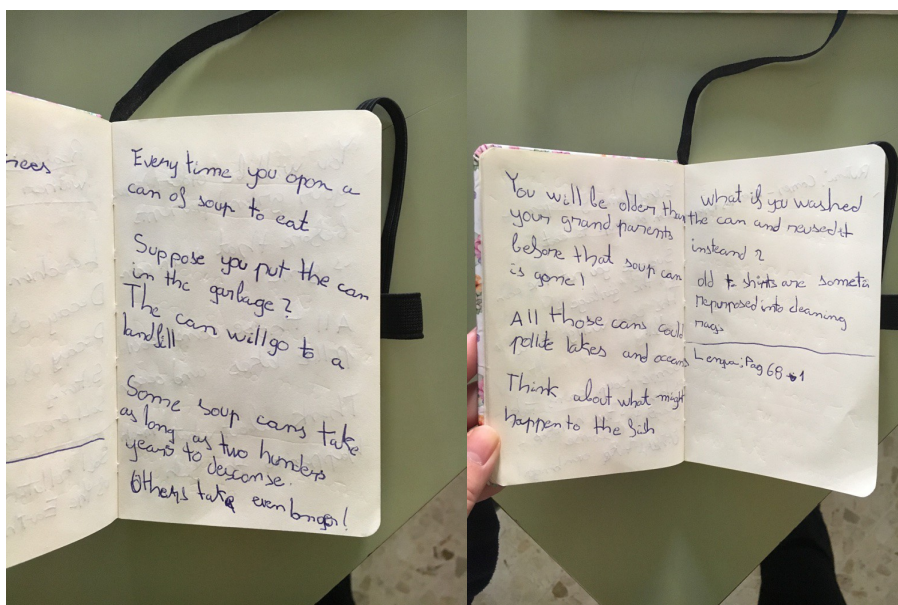 rees
Every time you opon a
can of soup to eat
Suppose you put the can
in the garbage?
The can will go to a
landfill
Some soup cans take
as long as two hunders
years to desconse.
Others take even longer!
You will be older than
your grand parents
before that soup can
is gone!
All those cans could
polite lakes and oceans
Think about what might
happen to the fish
what if you washed
the can and reused it
insteand?
old t shirts are someti
repurposed into cleaning
rags
Lengua: Pag 68 1